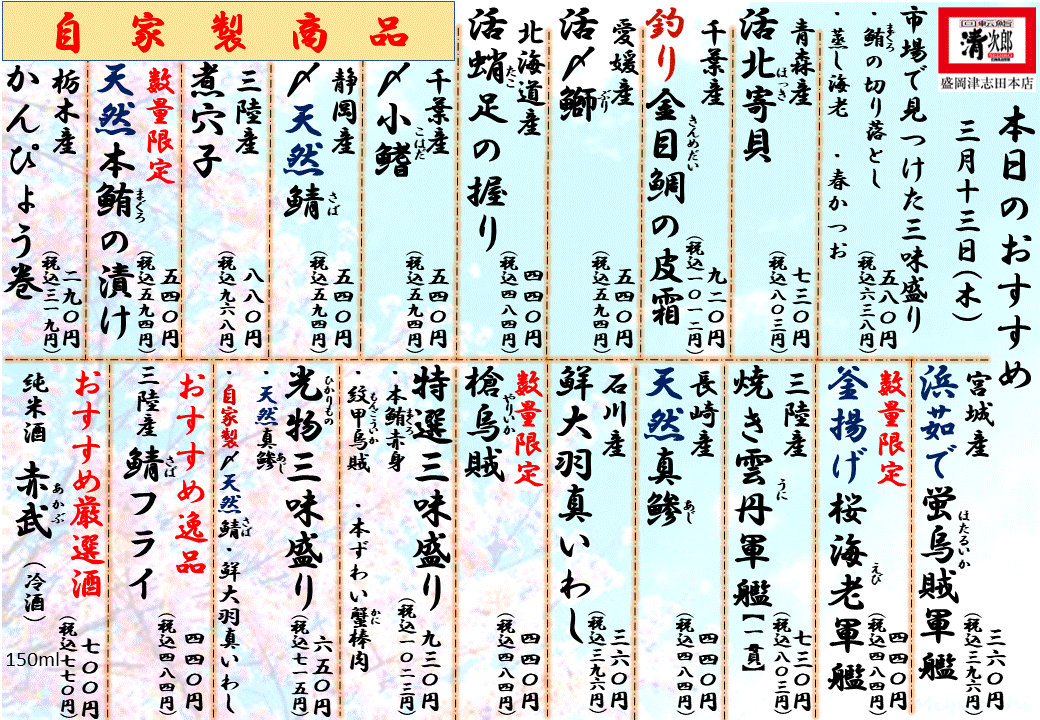 回転鮨
清次郎
盛岡津志田本店
本日のおすすめ
三月十三日(木)
市場で見つけた三味盛り
・鮪の切り落とし
まぐろ
・蒸し海老 ・春かつお
五八〇円
(税込六三八円)
青森産
活北寄貝
ほっき
七三〇円
(税込八〇三円)
千葉産
釣り金目鯛の皮霜
きんめだい
九二〇円
(税込一〇一二円)
愛媛産
活〆鰤
ぶり
五四〇円
(税込五九四円)
北海道産
活蛸足の握り
たこ
四四〇円
(税込四八四円)
自家製商品
千葉産
〆小鰭
こはだ
五四〇円
(税込五九四円)
静岡産
〆天然鯖
さば
五四〇円
(税込五九四円)
三陸産
煮穴子
八八〇円
(税込九六八円)
数量限定
天然本鮪の漬け
まぐろ
五四〇円
(税込五九四円)
栃木産
かんぴょう巻
二九〇円
(税込三一九円)
宮城産
浜茹で蛍烏賊軍艦
ほたるいか
三六〇円
(税込三九六円)
数量限定
釜揚げ桜海老軍艦
えび
四四〇円
(税込四八四円)
三陸産
焼き雲丹軍艦【一貫】
うに
七三〇円
(税込八〇三円)
長崎産
天然真鯵
あじ
四四〇円
(税込四八四円)
石川産
鮮大羽真いわし
三六〇円
(税込三九六円)
数量限定
槍烏賊
やりいか
四四〇円
(税込四八四円)
特選三味盛り
・本鮪赤身
まぐろ
・紋甲烏賊 ・本ずわい蟹棒肉
もんこういか
かに
九三〇円
(税込一〇二三円)
光物三味盛り
ひかりもの
・天然真鯵
あじ
・自家製〆天然鯖 ・鮮大羽真いわし
さば
六五〇円
(税込七一五円)
おすすめ逸品
三陸産 鯖フライ
さば
四四〇円
(税込四八四円)
おすすめ厳選酒
純米酒 赤武 (冷酒)
あかぶ
150ml
七〇〇円
(税込七七〇円)